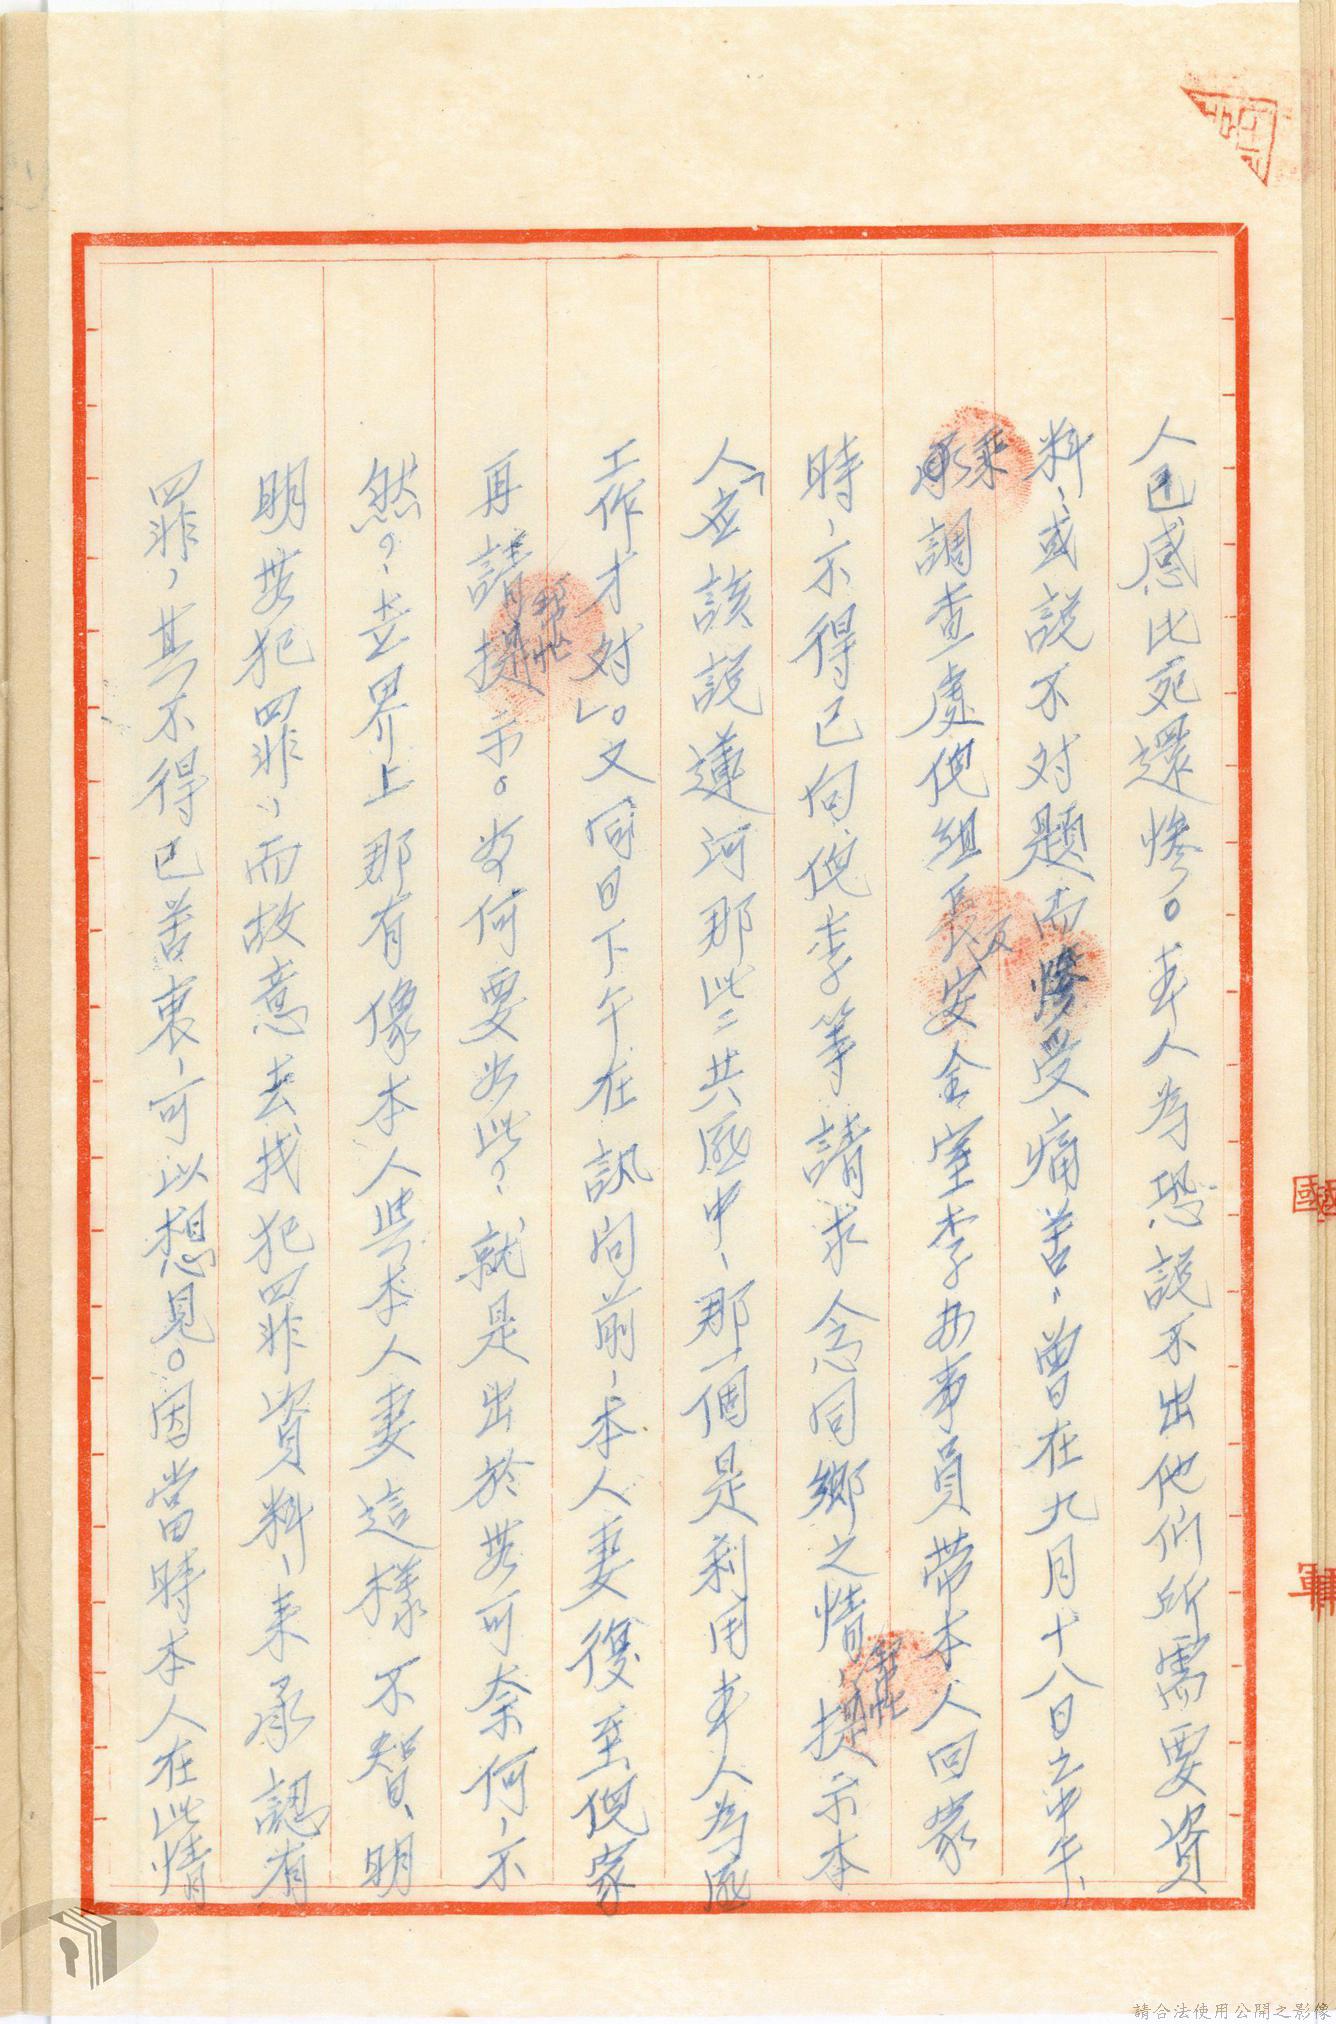 人已感比死還慘。本人為恐說不出他們所需要資
料、或說不对題而慘受痛苦、曾在九月十八日上中午、
乘調查處倪組長及安全室李办事員帶本人回家
時、不得已向倪李等請求念同鄉之情、幫忙提示本
人「应該說蓮河那些共匪中、那一個是利用本人為匪
工作才对」。又同日下午在訊问前、本人妻復至倪家
再請幫忙提示。为何要如此？就是出於無可奈何、不
然？去界上那有像本人與本人妻這樣不智、明
明無犯罪、而故意去找犯罪資料、来承認有
罪、其不得已苦衷、可以想見。因當時本人在此情
國
軍
請合法使用公開之影像